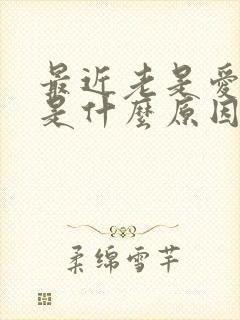 最近老是爱
是什麼原因
柔绵雪芊